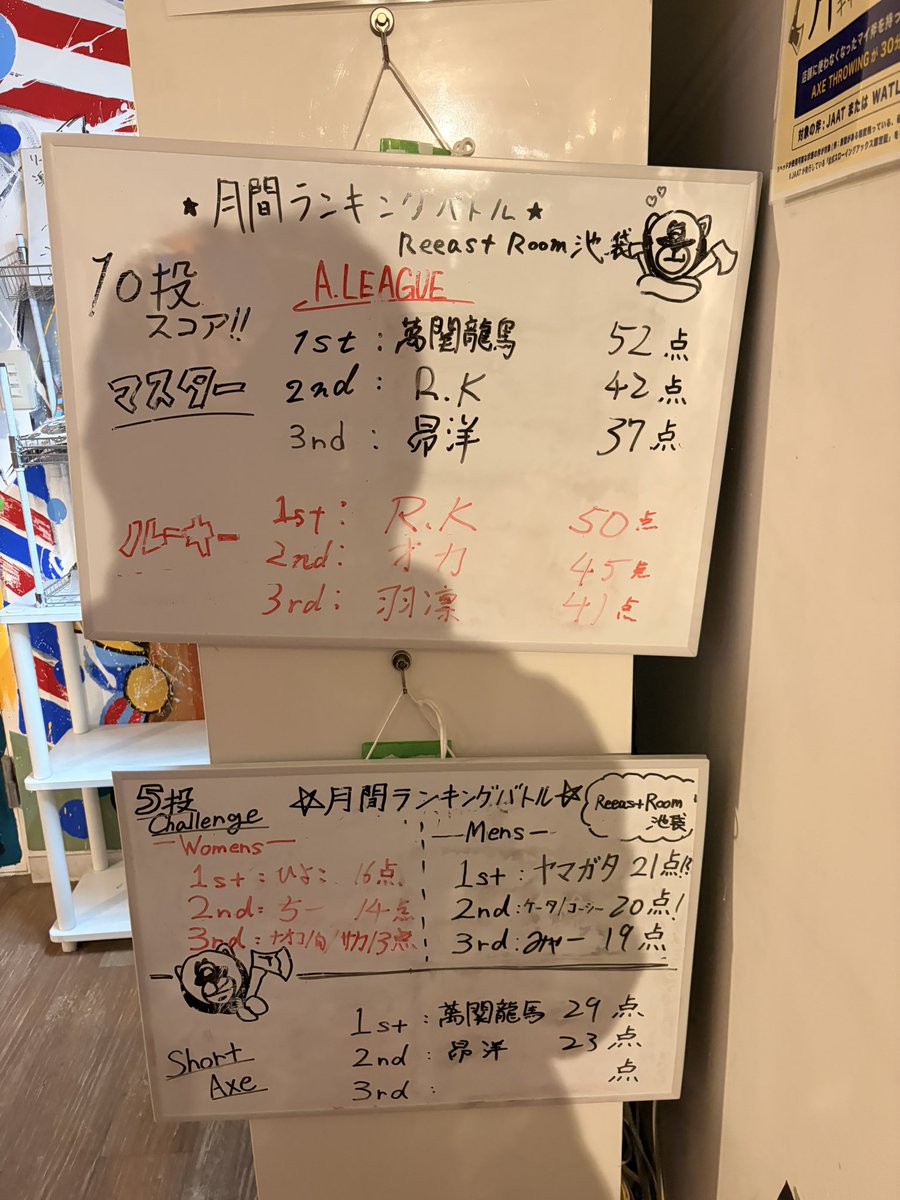 店舗に使わなくなったマイ斧を持っ
AXE THROWING が 30分
対象の斧：JAAT または WATL
★月間ランキングバトル★
Reeast Room 池袋
10投
スコア!!
A.LEAGUE
マスター
1st：萬関龍馬 52点
2nd：R.K 42点
3nd：昂洋 37点
ルーキー
1st：R.K 50点
2nd：オカ 45点
3rd：羽凛 41点
5投
Challenge
☆月間ランキングバトル☆
Reeast Room
池袋
ーWomensー
1st：ひよこ 16点
2nd：ちー 14点
3rd：ナオコ/ /サカ/13点
ーMensー
1st：ヤマガタ 21点!!
2nd：ケータ/コーシー 20点!
3rd：みやー 19点
Short
Axe
1st：萬関龍馬 29点
2nd：昂洋 23点
3rd： 点